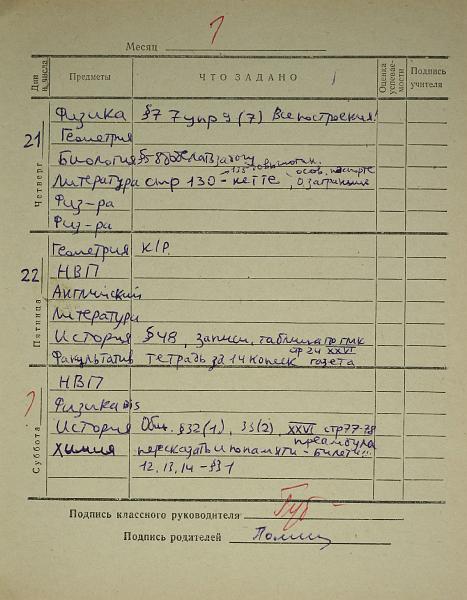 1
Месяц
Дни и числа Предметы ЧТО ЗАДАНО Оценка успеваемости Подпись учителя
21 Четверг
Физика §7 7 упр 9 (7) Все построения!
Геометрия
Биология
Литература стр 130 -
Физ-ра
Физ-ра
22 Пятница
Геометрия К/Р.
НВП
Английский
Литература
История §48, записи, таблица по
Факультатив тетрадь за 14 копеек газета
Суббота
НВП
Физика
История Общ. §32(1), 33(2), XXVI стр 77-78
преамбула
Химия пересказать и по памяти - билеты!!!
12, 13, 14 - §31
Подпись классного руководителя
Подпись родителей